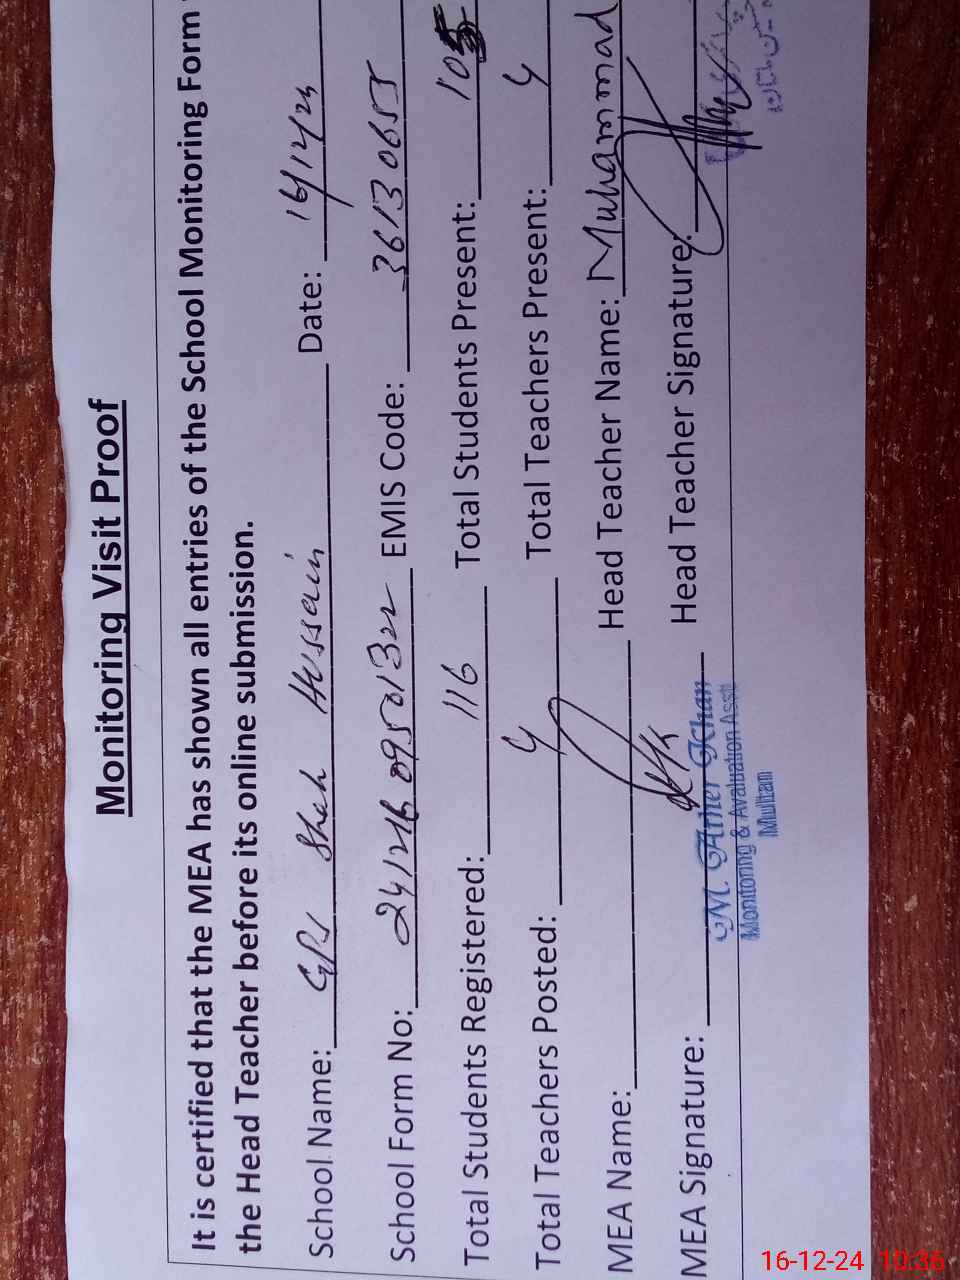 Monitoring Visit Proof
It is certified that the MEA has shown all entries of the School Monitoring Form
the Head Teacher before its online submission.
School Name: GPS Shah Hussain Date: 16/12/24
School Form No: 241216 09501322 EMIS Code: 36130655
Total Students Registered: 116 Total Students Present: 105
Total Teachers Posted: 4 Total Teachers Present: 4
MEA Name: Head Teacher Name: Muhammad
MEA Signature: Head Teacher Signature:
M. Amer Khan
Monitoring & Evaluation Asstt
Multan
16-12-24 10:36